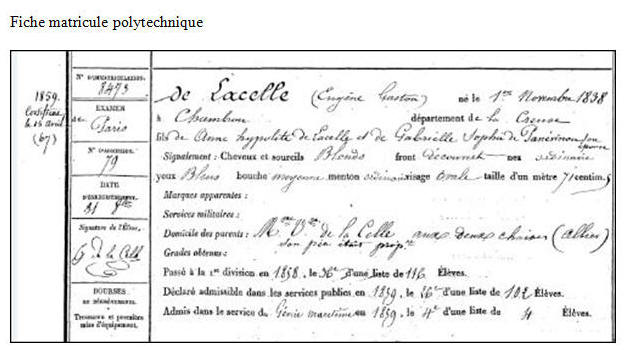 Fiche matricule polytechnique
1859.
Certificat
le 15 Avril
(67)
N° D'IMMATRICULATION.
8473
EXAMEN
de Paris
N° D'ADMISSION.
79
DATE
D'ENREGISTREMENT.
31 8bre
Signature de l'Élève.
G de la Celle
BOURSES
Trousseau et première
mise d'équipement.
de Lacelle (Eugène Gaston) né le 1er Novembre 1838
à Chambon département de la Creuse
fils de Anne hypolite de Lacelle et de Gabrielle Sophie de son épouse
Signalement : Cheveux et sourcils Blonds front découvert nez ordinaire
yeux Bleus bouche moyenne menton ordinaire visage ovale taille d'un mètre 71 centim.s
Marques apparentes :
Services militaires :
Domicile des parents : Mme Vve de la Celle aux deux chaises (Allier)
son père était propre
Grades obtenus :
Passé à la 1re division en 1858, le 36e d'une liste de 116 Élèves.
Déclaré admissible dans les services publics en 1859, le 26e d'une liste de 102 Élèves.
Admis dans le service du Génie maritime en 1859, le 4e d'une liste de 4 Élèves.